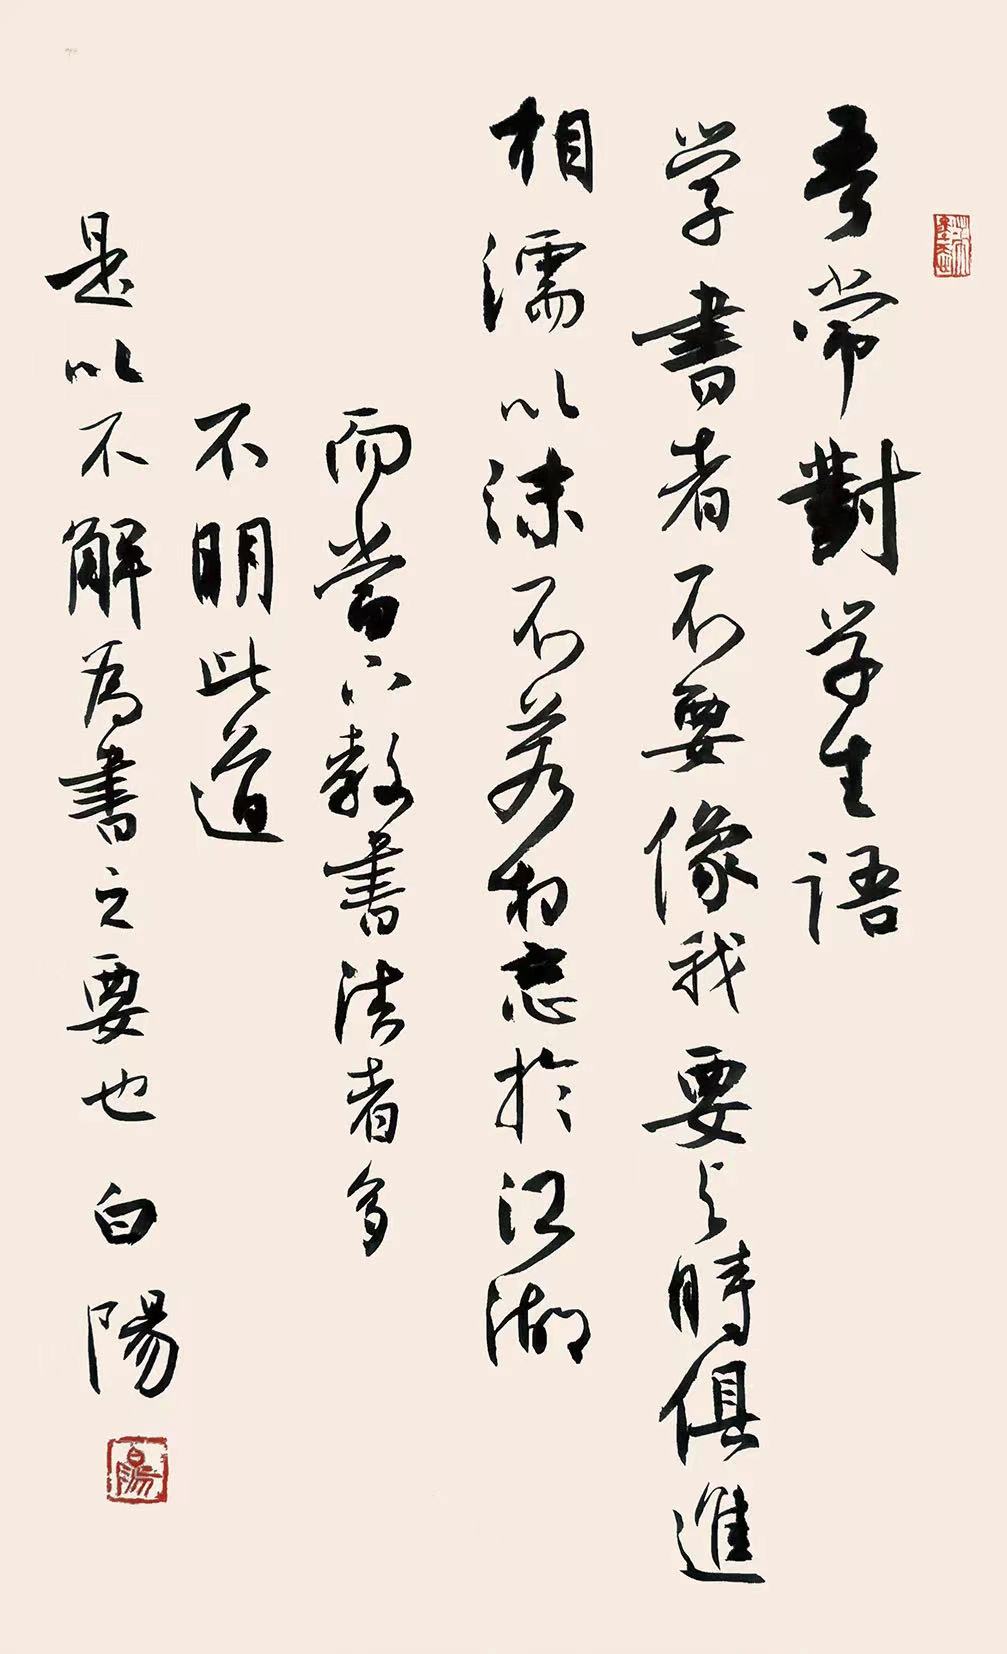 吾常對学生語
学書者不要像我要与時俱進
相濡以沫不若相忘於江湖
而當下教書法者多
不明此道
是以不解為書之要也 白陽
白陽